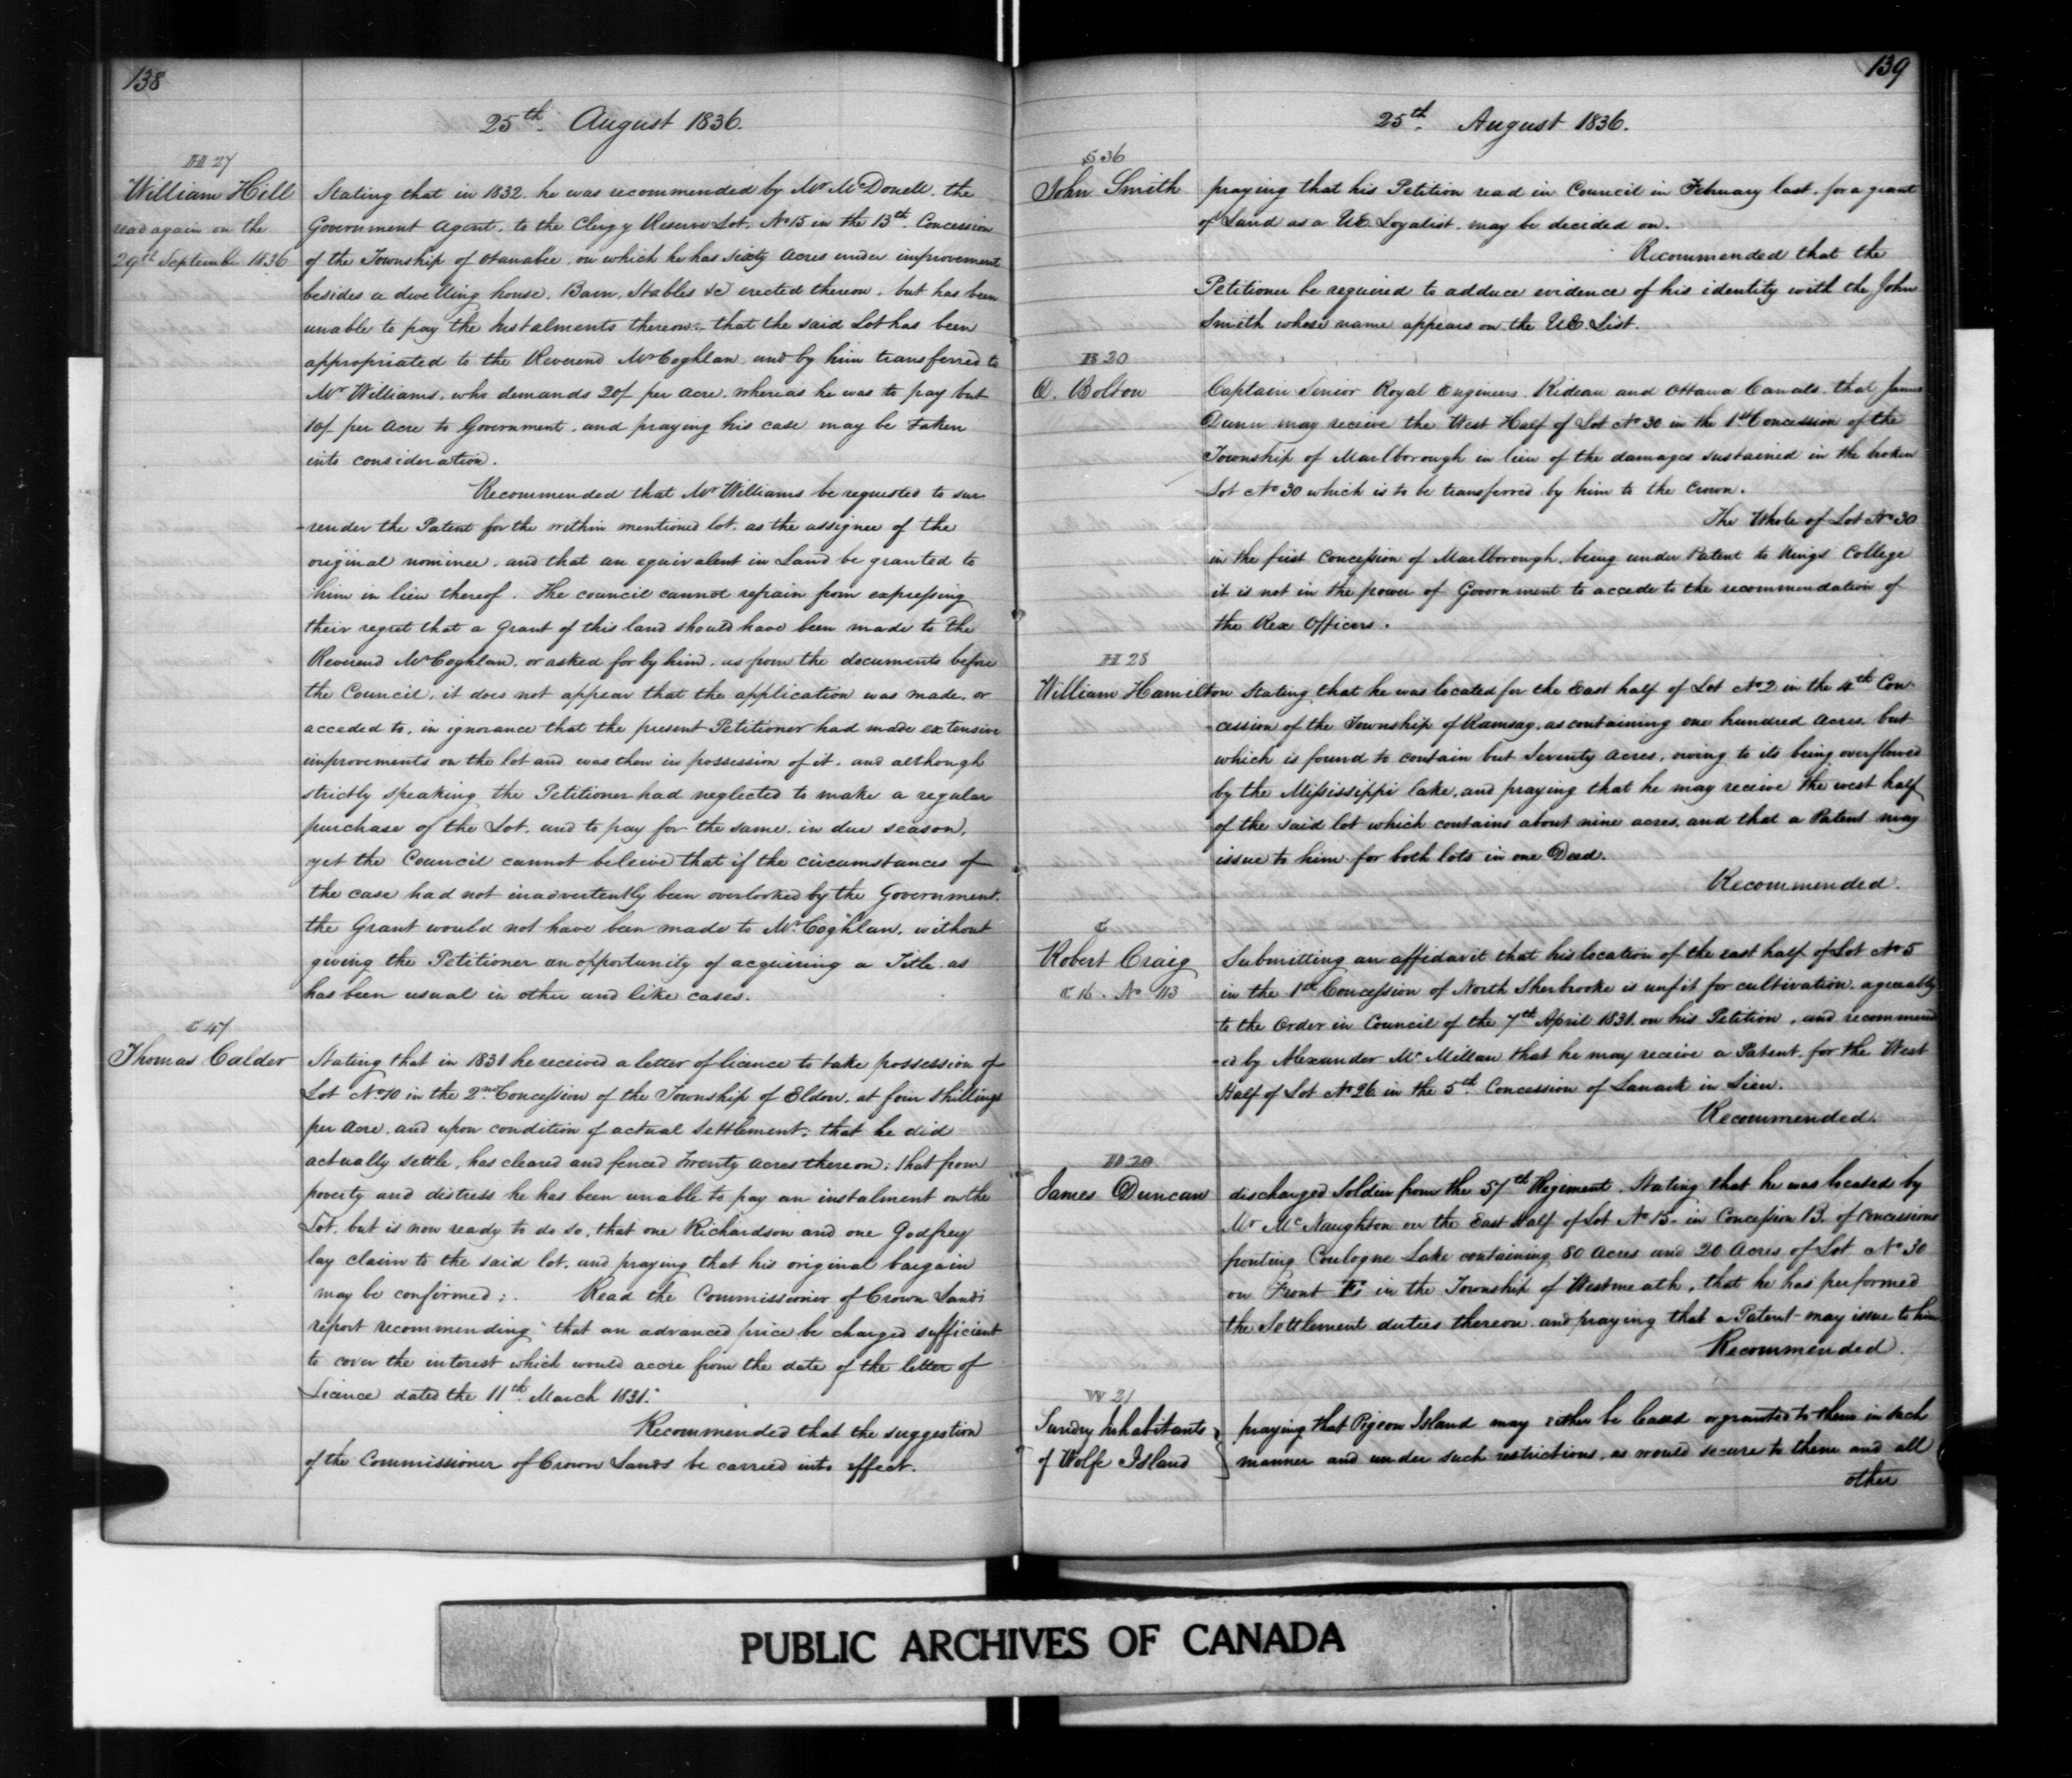 138
25th. August 1836.
H 27
William Hill
read again on the
29th September 1836
Stating that in 1832. he was recommended by Mr McDonell, the
Government Agent, to the Clergy Reserve Lot, No 15 in the 13th. Concession
of the Township of Otanabee, on which he has sixty Acres under improvement
besides a dwelling house, Barn, Stables &c erected thereon, but has been
unable to pay the Instalments thereon; that the said Lot has been
appropriated to the Reverend Mr Coghlan, and by him transferred to
Mr Williams, who demands 20/ per Acre, whereas he was to pay but
10/ per Acre to Government, and praying his case may be taken
into consideration.
Recommended that Mr Williams be requested to sur
-render the Patent for the within mentioned lot, as the assignee of the
original nominee, and that an equivalent in Land be granted to
him in lieu thereof. The council cannot refrain from expressing
their regret that a Grant of this land should have been made to the
Reverend Mr Coghlan, or asked for by him, as from the documents before
the Council, it does not appear that the application was made, or
acceded to, in ignorance that the present Petitioner had made extensive
improvements on the lot and was then in possession of it, and although
strictly speaking the Petitioner had neglected to make a regular
purchase of the Lot, and to pay for the same, in due season,
yet the Council cannot beleive that if the circumstances of
the case had not inadvertently been overlooked by the Government,
the Grant would not have been made to Mr Coghlan, without
giving the Petitioner an opportunity of acquiring a Title, as
has been usual in other and like cases.
C 47
Thomas Calder
Stating that in 1831 he received a letter of licence to take possession of
Lot No 10 in the 2nd Concession of the Township of Eldon, at four shillings
per Acre, and upon condition of actual settlement; that he did
actually settle, has cleared and fenced Twenty Acres thereon; that from
poverty and distress he has been unable to pay an instalment on the
Lot, but is now ready to do so, that one Richardson and one Godfrey
lay claim to the said lot, and praying that his original bargain
may be confirmed; Read the Commissioner of Crown Lands
report recommending "that an advanced price be charged sufficient
to cover the interest which would accre from the date of the letter of
Licence dated the 11th March 1831."
Recommended that the suggestion
of the Commissioner of Crown Lands be carried into effect.
139
25th. August 1836.
S 36
John Smith
praying that his Petition read in Council in February last, for a grant
of Land as a U.E. Loyalist, may be decided on.
Recommended that the
Petitioner be required to adduce evidence of his identity with the John
Smith whose name appears on the U.E. List.
B 20
D. Bolton
Captain Senior Royal Engineers Rideau and Ottawa Canals, that James
Dunn may receive the West Half of Lot No 30 in the 1st Concession of the
Township of Marlborough in lieu of the damages sustained in the broken
Lot No 30 which is to be transferred by him to the Crown.
The Whole of Lot No 30
in the first Concession of Marlborough, being under Patent to Kings College
it is not in the power of Government to accede to the recommendation of
the Rex Officers.
H 28
William Hamilton Stating that he was located for the East half of Lot No 2 in the 4th Con-
-cession of the Township of Ramsay, as containing one hundred Acres, but
which is found to contain but Seventy Acres, owing to its being overflowed
by the Mississippi lake, and praying that he may receive the west half
of the said lot which contains about nine acres, and that a Patent may
issue to him for both lots in one Deed.
Recommended.
C
Robert Craig
C 16. No 113
Submitting an affidavit that his location of the east half of Lot No 5
in the 1st Concession of North Sherbrooke is unfit for cultivation, agreeably
to the Order in Council of the 7th April 1831 on his Petition, and recommend
-ed by Alexander McMillan that he may receive a Patent, for the West
Half of Lot No 26 in the 5th. Concession of Lanark in Lieu.
Recommended.
D 20
James Duncan
discharged Soldier from the 57th Regiment, Stating that he was located by
Mr McNaughton on the East Half of Lot No 15. in Concession B. of Concessions
fronting Coulogne Lake containing 80 Acres and 20 Acres of Lot No 30
on Front E. in the Township of Westmeath, that he has performed
the Settlement duties thereon and praying that a Patent may issue to him
Recommended.
W 21
Sundry Inhabitants
of Wolfe Island
praying that Pigeon Island may either be leased or granted to them in such
manner and under such restrictions, as would secure to them and all
other
PUBLIC ARCHIVES OF CANADA